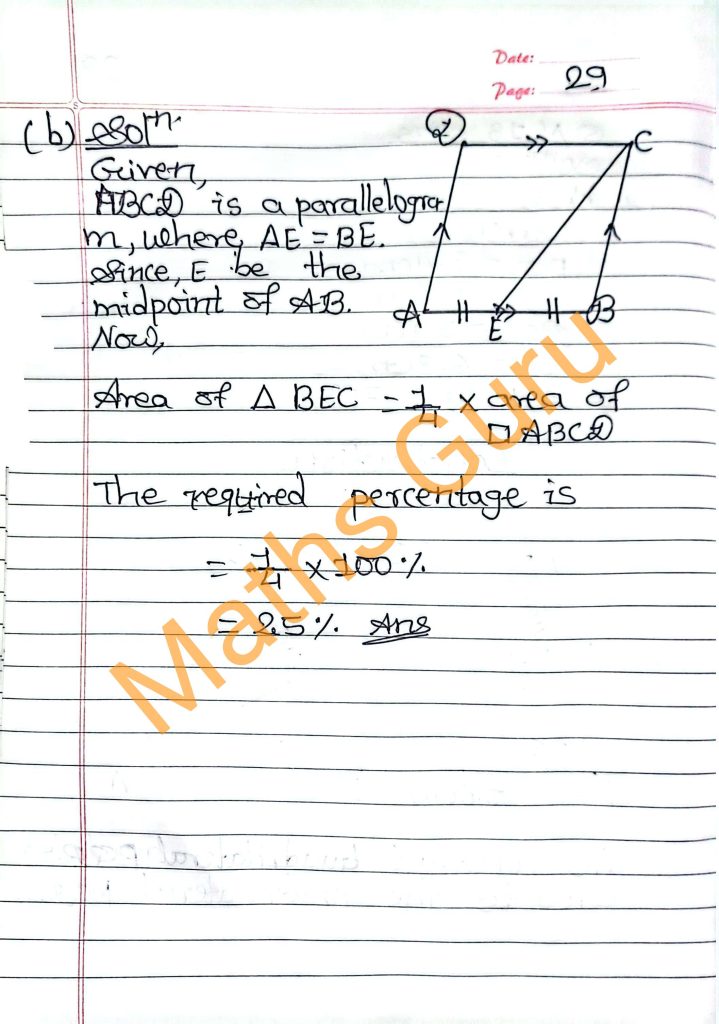 Date:
Page: 29
(b) Solⁿ.
Given,
ABCD is a parallelogra
m, where, AE = BE.
Since, E be the
midpoint of AB.
Now,
D
C
A
E
B
Area of Δ BEC = 1/4 × area of
▱ ABCD
The required percentage is
= 1/4 × 100%
= 25% Ans
Maths Guru